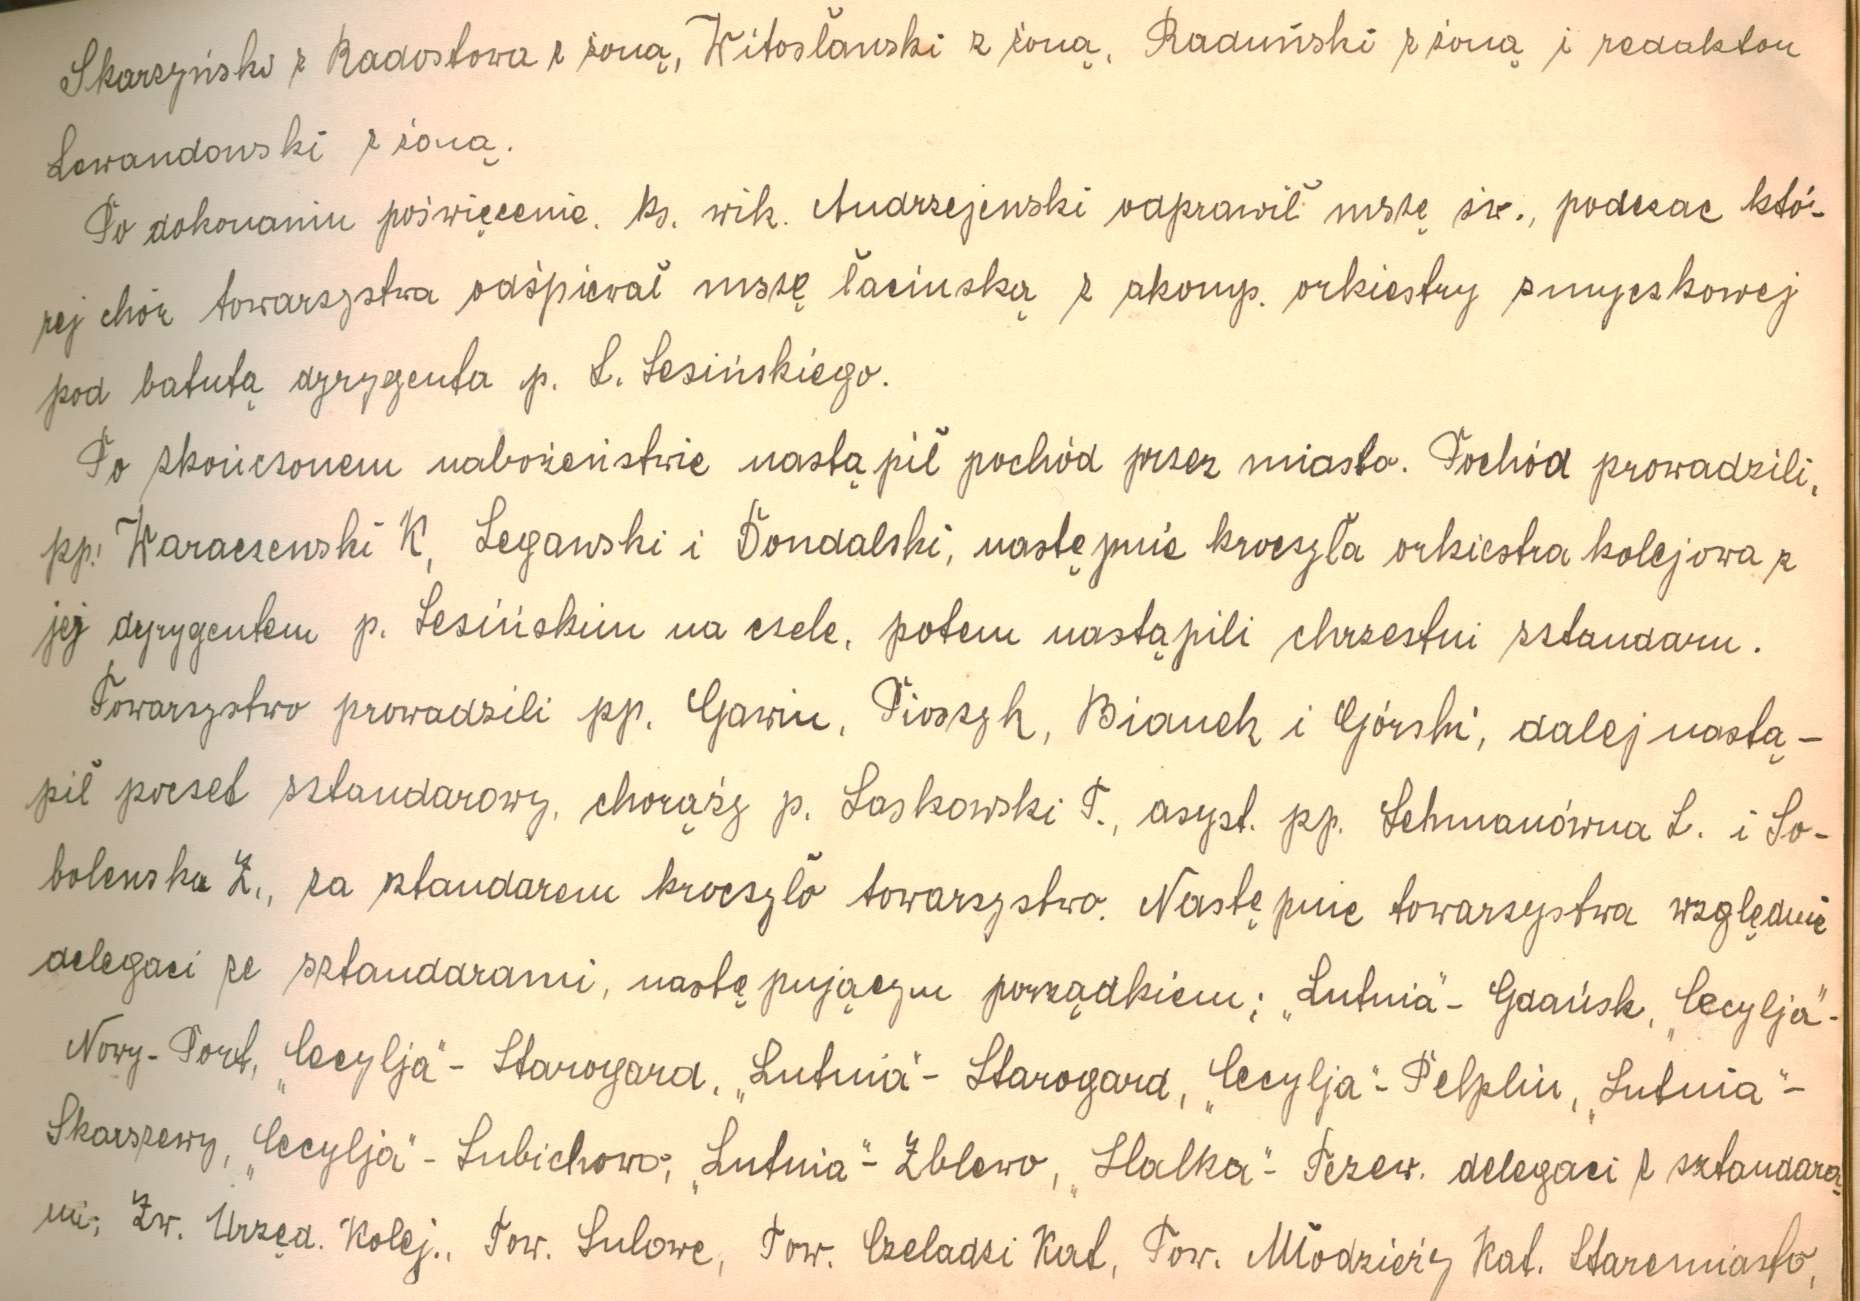 Skarzyński z Radostowa z żoną, Witosławski z żoną, Raduński z żoną i redaktor
Lewandowski z żoną.
Po dokonaniu poświęcenie. ks. wik. Andrzejewski odprawił mszę św., podczac któ-
rej chór towarzystwa odśpiewał mszę łacińską z akomp. orkiestry smyczkowej
pod batutą dyrygenta p. L. Lesińskiego.
Po skończonem nabożeństwie nastąpił pochód przez miasto. Pochód prowadzili,
pp. Waraczewski K, Legawski i Dondalski, następnie kroczyła orkiestra kolejowa z
jej dyrygentem p. Lesińskim na czele, potem nastąpili chrzestni sztandaru.
Towarzystwo prowadzili pp. Gawin, Pioszyk, Bianek i Górski, dalej nastą-
pił poczet sztandarowy, chorąży p. Laskowski T., asyst. pp. Lehmanówna L. i So-
bolewska Z., za sztandarem kroczyło towarzystwo. Następnie towarzystwa względnie
delegaci ze sztandarami, następującym porządkiem; „Lutnia" - Gdańsk, „Cecylja" -
Nowy-Port, „Cecylja" - Starogard, „Lutnia" - Starogard, „Cecylja" - Pelplin, „Lutnia" -
Skarszewy, „Cecylja" - Lubichowo; „Lutnia" - Zblewo, „Halka" - Tczew. delegaci z sztandara-
mi; Zw. Urzęd. Kolej., Tow. Ludowe, Tow. Czeladzi Kat, Tow. Młodzieży Kat. Staremiasto,